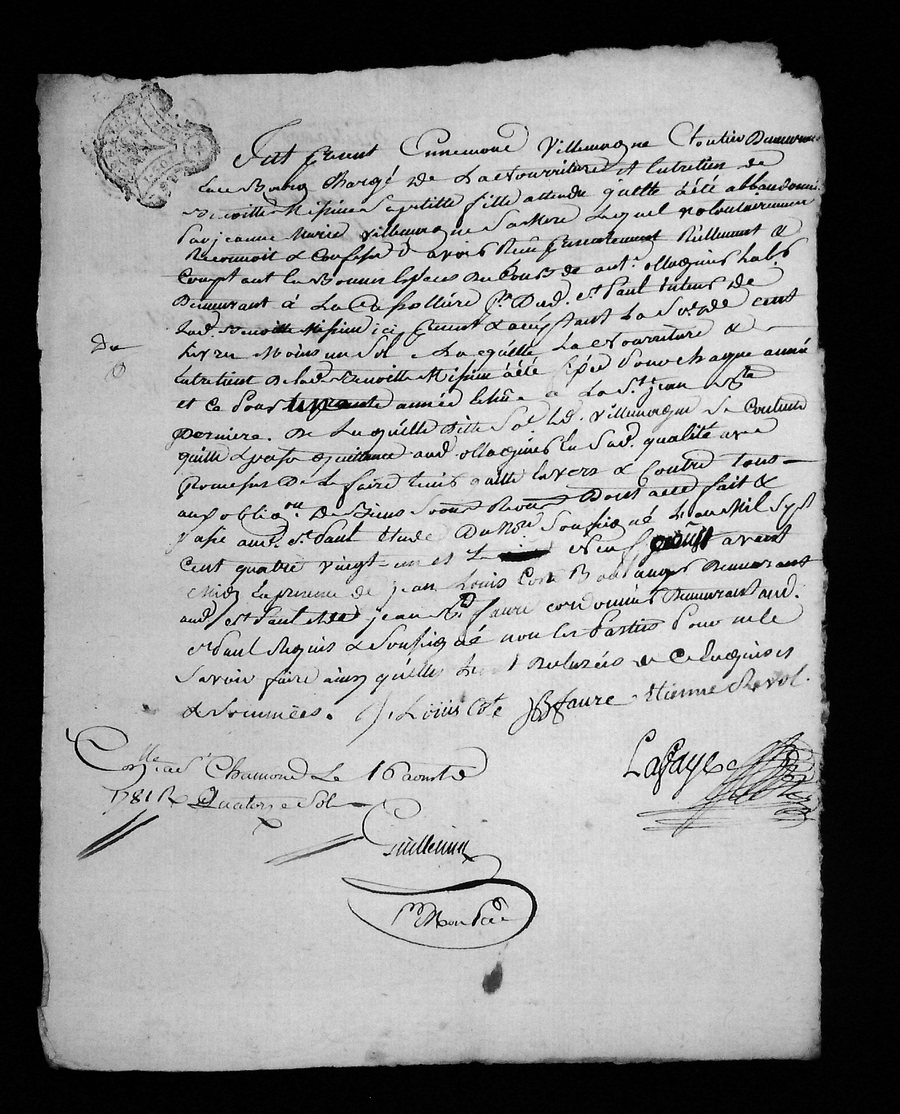 Fut présent Ennemond Villemagne Cloutier Demeurant
en ce Bourg Chargé De La Nourriture et Entretien de
Benoitte Missire Sa petitte fille attendu quelle a été abbandonné
Par jeanne Marie Villemagne Sa Mere Lequel volontairement
Reconnoit & Confesse d'avoir Reçu presentement Rééllement &
Comptant en Bonnes Espèces Du Cours de ant.e ollagnier Lab.r
Demeurant à La Chapollière p.sse Dud. St Paul tuteur de
Lad. Benoitte Missire ici présent & acceptant La So.e de cent
Livres Moins un Sol a Laquelle La Nourriture &
Entretient De Lad. Benoitte Missire a été fixée Pour chaque année
et Ce Pour année Echue a La St jean B.te
Derniere. De Laquelle Ditte So.e Led. Villemagne Se Contente
quitte & passe quittance aud. ollagnier En Sad. qualité avec
Promesse De Le faire tenir quitte Envers & Contre tous
aux obliga.on De Biens Dont acte fait &
Passé aud. St Paul Etude Du No.re Soussigné L'an Mil Sept
Cent quatre vingt-un et Le Neuf aoust avant
Midy En presence de jean Louis Cote Boulanger Demeurant
aud. St Paul & de jean B.te faure cordonnier Demeurant aud.
St Paul Requis & Soussigné non les Parties Pour ne le
Savoir faire ainsi quelles L'ont Declarées de Ce Enquises
& Sommées. J. Louis Cote JB faure Etienne Revol.
De
0
Lafaye
Con.lle a St Chamond Le 16 aoust
1781 R. Quatorze Sols
Guillemin
P.r Mon Père